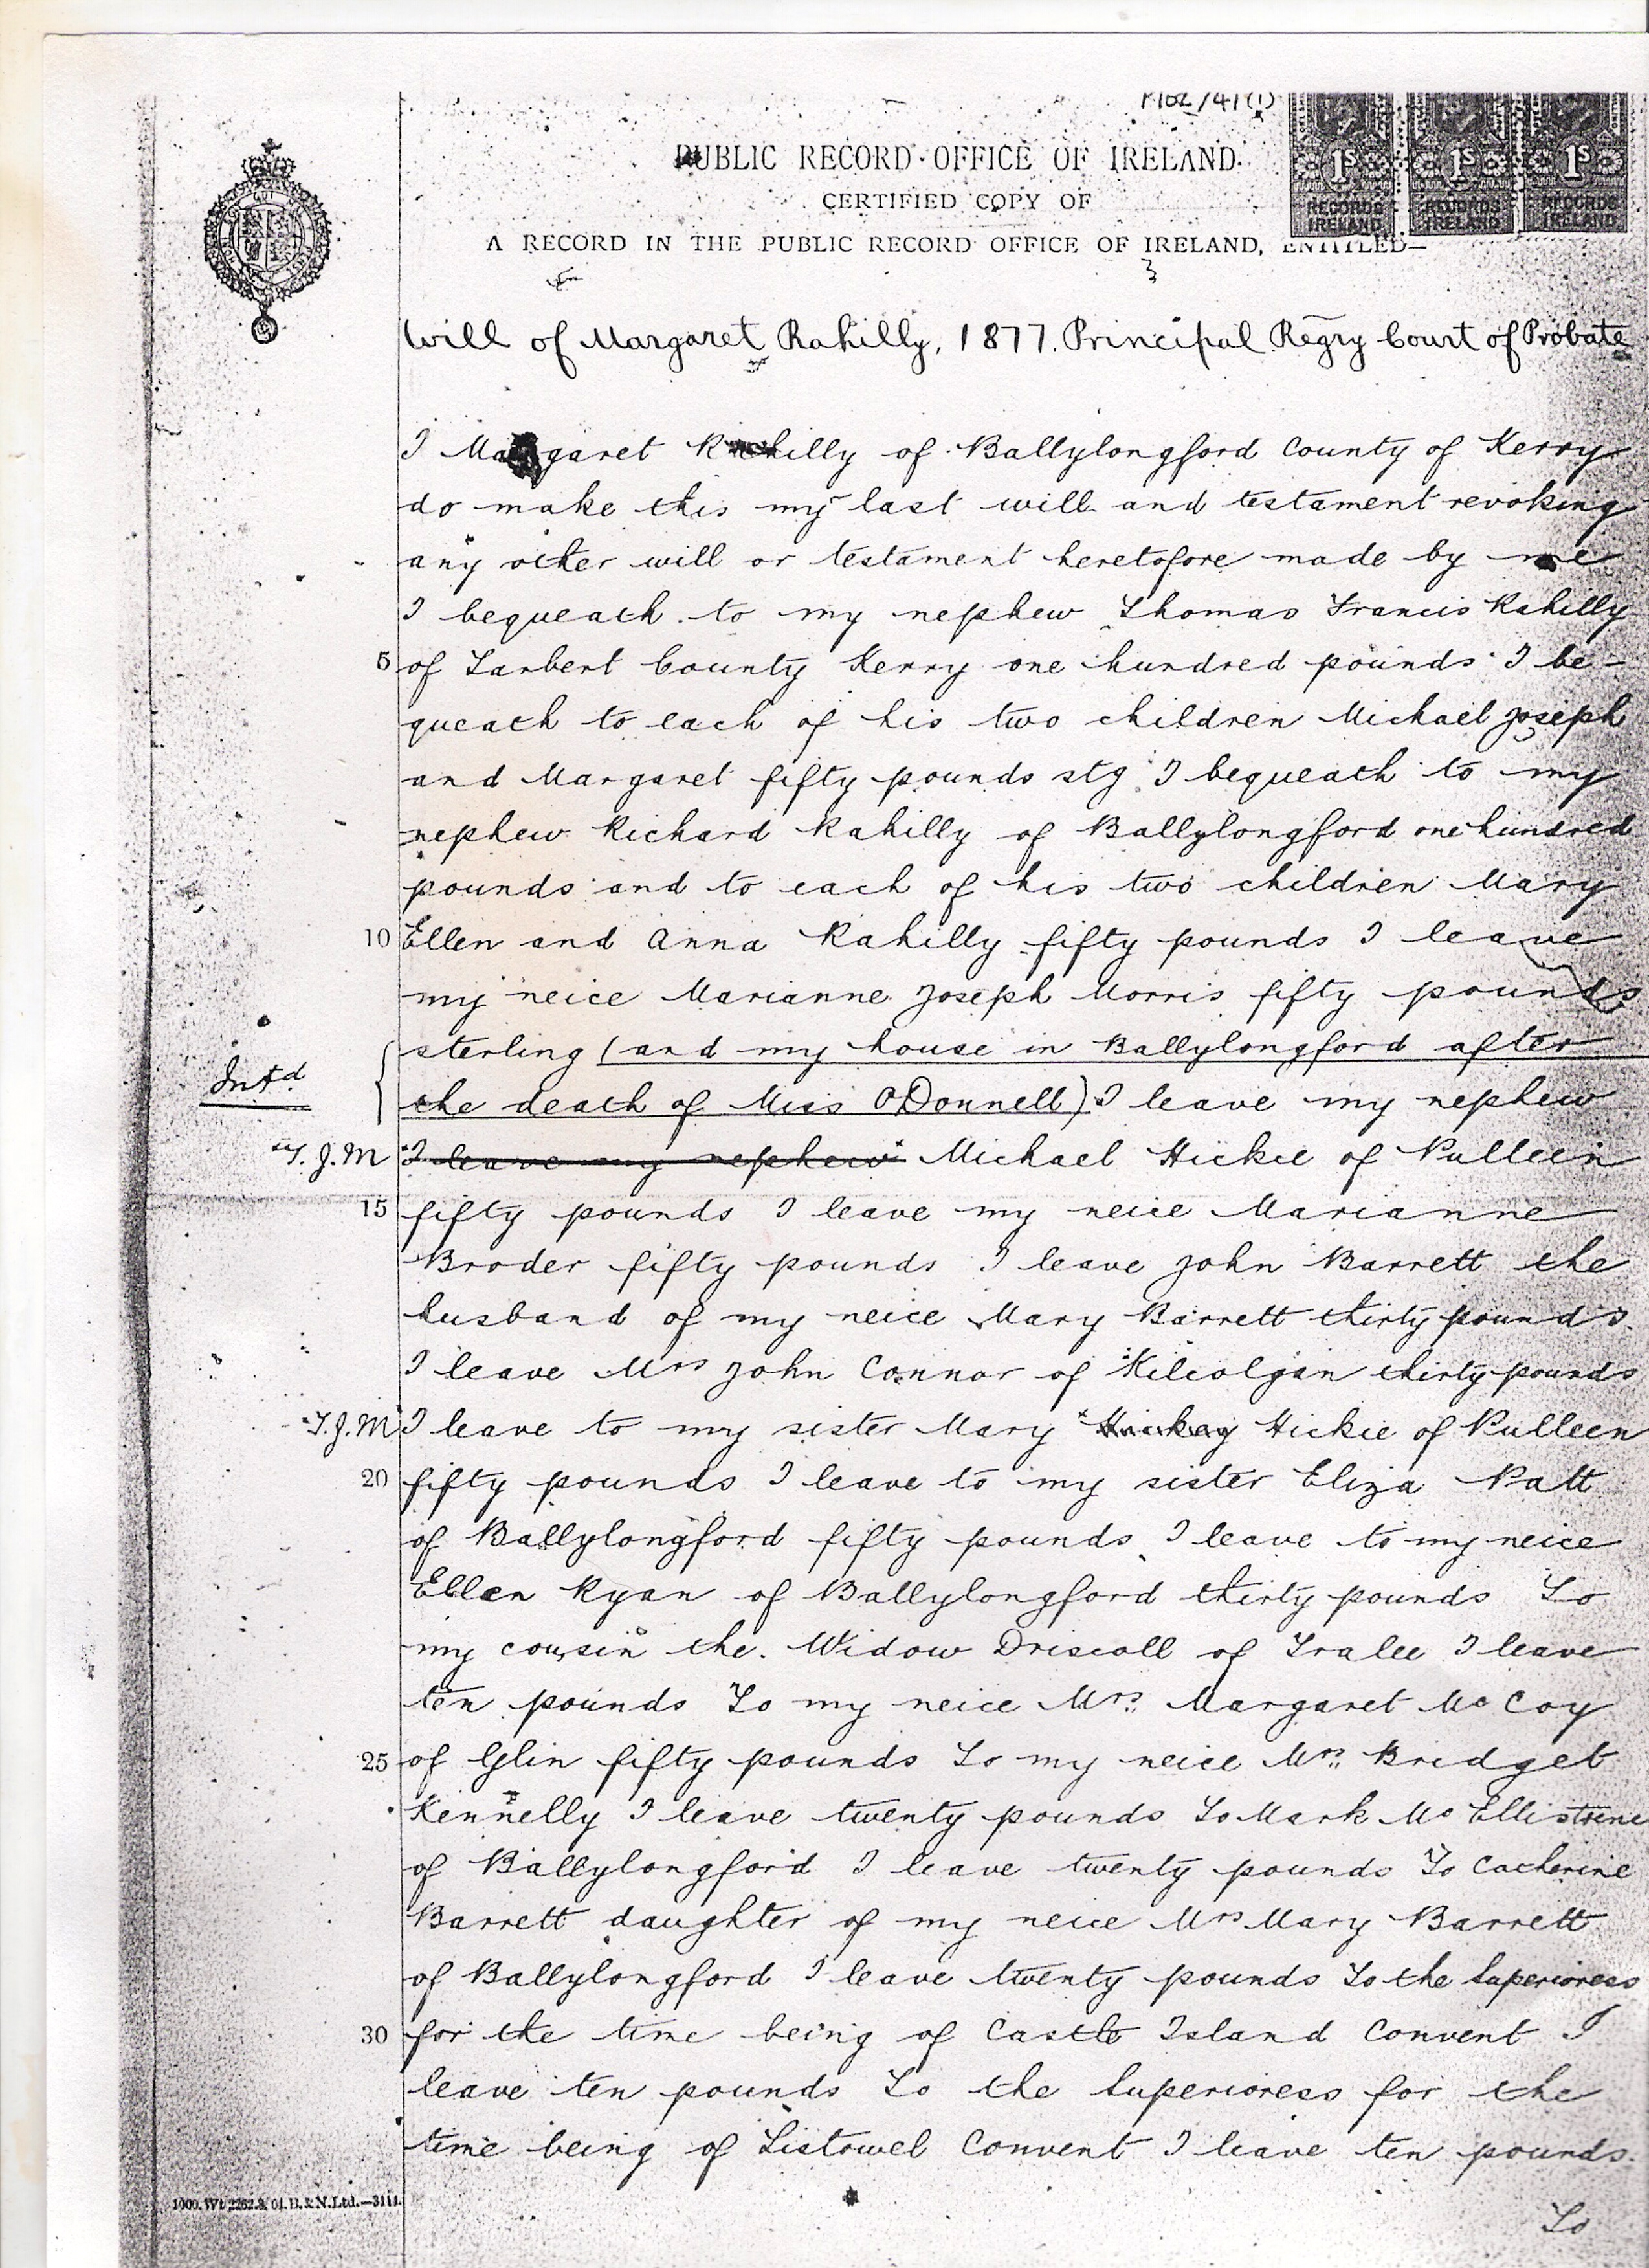 P102/41(1)
PUBLIC RECORD OFFICE OF IRELAND
CERTIFIED COPY OF
A RECORD IN THE PUBLIC RECORD OFFICE OF IRELAND, ENTITLED—
1s 1s 1s
RECORDS IRELAND RECORDS IRELAND RECORDS IRELAND
Will of Margaret Rahilly, 1877. Principal Regry Court of Probate
I Margaret Rahilly of Ballylongford County of Kerry
do make this my last will and testament revoking
any other will or testament heretofore made by me
I bequeath to my nephew Thomas Francis Rahilly
5 of Tarbert County Kerry one hundred pounds I be-
queath to each of his two children Michael Joseph
and Margaret fifty pounds stg I bequeath to my
nephew Richard Rahilly of Ballylongford one hundred
pounds and to each of his two children Mary
10 Ellen and Anna Rahilly fifty pounds I leave
my neice Marianne Joseph Morris fifty pounds
sterling (and my house in Ballylongford after
Intd the death of Miss ODonnell) I leave my nephew
T.J.M I leave my nephew Michael Hickie of Pulleen
15 fifty pounds I leave my neice Marianne
Broder fifty pounds I leave John Barrett the
husband of my neice Mary Barrett thirty pounds
I leave Mrs John Connor of Kilcolgan thirty pounds
T.J.M I leave to my sister Mary Hickey Hickie of Pulleen
20 fifty pounds I leave to my sister Eliza Patt
of Ballylongford fifty pounds I leave to my neice
Ellen Ryan of Ballylongford thirty pounds To
my cousin the Widow Driscoll of Tralee I leave
ten pounds To my neice Mrs Margaret Mc Coy
25 of Glin fifty pounds To my neice Mrs Bridget
Kennelly I leave twenty pounds To Mark Mc Ellistrine
of Ballylongford I leave twenty pounds To Catherine
Barrett daughter of my neice Mrs Mary Barrett
of Ballylongford I leave twenty pounds To the Superioress
30 for the time being of Castle Island Convent I
leave ten pounds To the Superioress for the
time being of Listowel Convent I leave ten pounds
1000.Wt 2262.8/04.B.&N.Ltd.—3111.
To